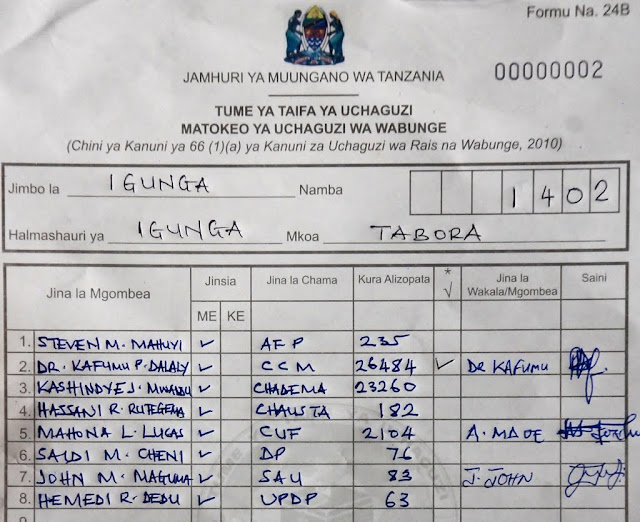 Formu Na. 24B
JAMHURI YA MUUNGANO WA TANZANIA
00000002
TUME YA TAIFA YA UCHAGUZI
MATOKEO YA UCHAGUZI WA WABUNGE
(Chini ya Kanuni ya 66 (1)(a) ya Kanuni za Uchaguzi wa Rais na Wabunge, 2010)
Jimbo la IGUNGA Namba 1402
Halmashauri ya IGUNGA Mkoa TABORA
Jina la Mgombea Jinsia Jina la Chama Kura Alizopata * √ Jina la Wakala/Mgombea Saini
ME KE
1. STEVEN M. MAHUYI ✓ AFP 235
2. DR. KAFUMU P. DALALY ✓ CCM 26484 ✓ DR KAFUMU
3. KASHINDYE J. ✓ CHADEMA 23260
4. HASSANI R. RUTEGEMA ✓ CHAUSTA 182
5. MAHONA L. LUCAS ✓ CUF 2104 A. MADE
6. SAIDI M. CHENI ✓ DP 76
7. JOHN M. MAGUMA ✓ SAU 83 J. JOHN
8. HEMEDI R. DEDU ✓ UPDP 63